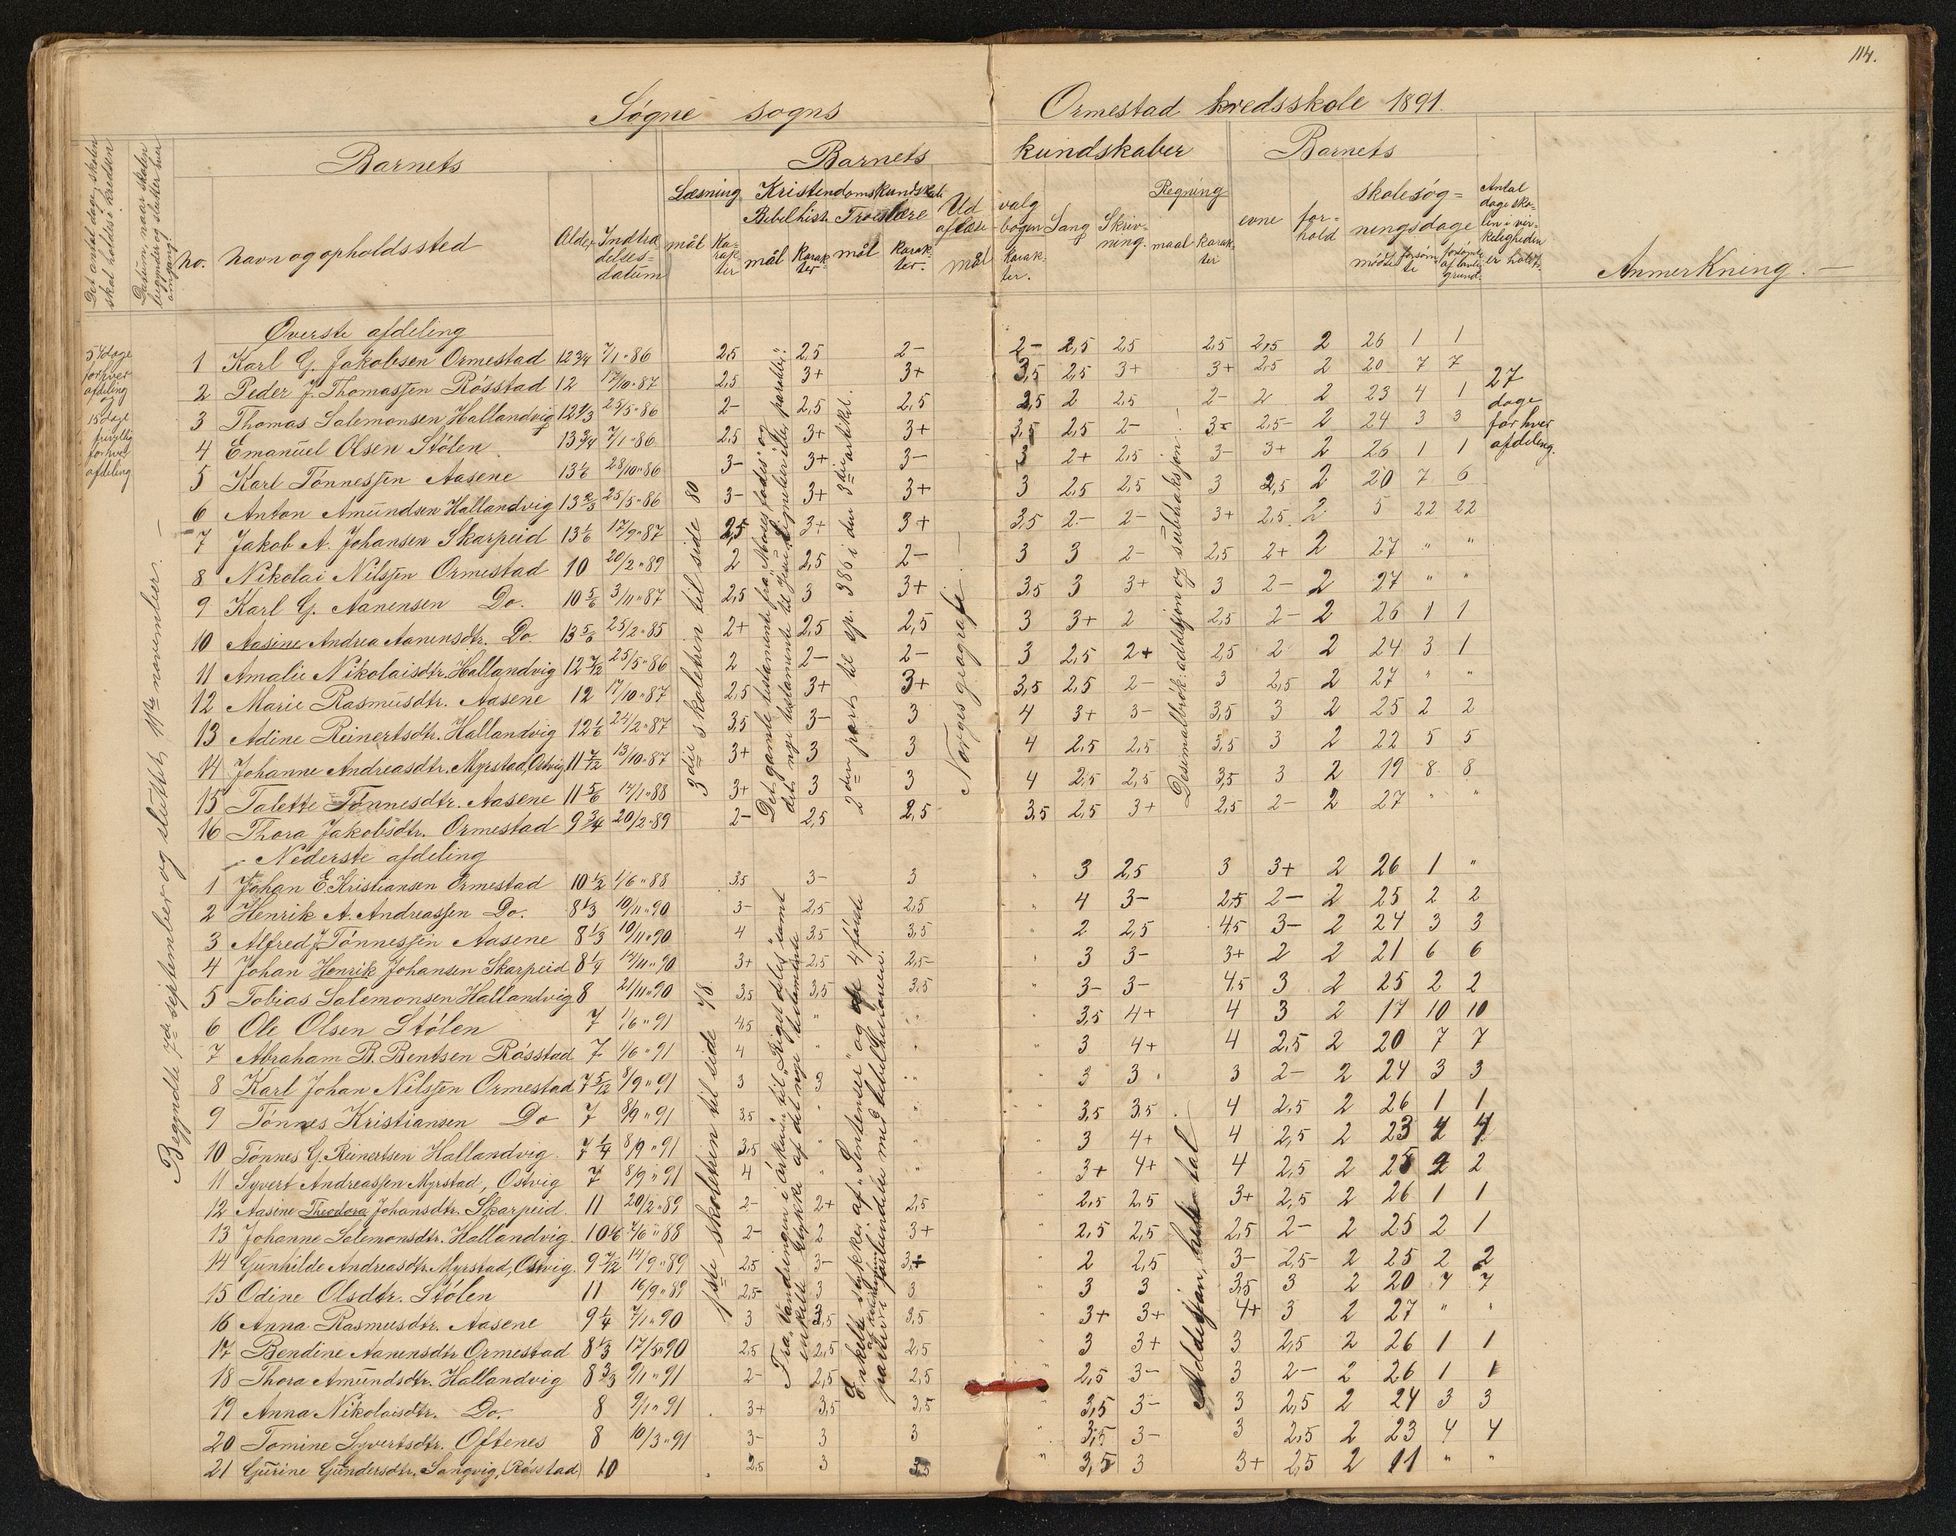 114.
Søgne sogns Ormestad kredsskole 1891.
Det antal dage, skolen skal holdes i kredsen
Datum, naar skolen begynder og slutter hver omgang
No.
Barnets
navn og opholdssted
Alder
Indtrædelses=datum
Barnets kundskaber
Læsning
mål
Karakter
Kristendomskundskab
Bibelhist.
mål
Karakter.
Troeslære
mål
Karakter.
Udvalg af læsebogen
mål
Karakter.
Sang
Skrivning.
Regning
maal
Karakter
Barnets
evne
forhold
skolesøgningsdage
mødte
forsømte
forsømte af lovlig grund
Antal dage skolen i virkeligheden er holdt.
Anmerkning. —
54 dage for hver afdeling og 15 dage frivillig for hver afdeling
Begyndte 7de september og sluttet 11te november. —
Øverste afdeling
1 Karl G. Jakobsen Ormestad 12 3/4 7/1 " 86 2,5 2,5 2- 2- 2,5 2,5 2,5 2,5 2 26 1 1
2 Peder J. Thomassen Røsstad 12 17/10 " 87 2,5 3+ 3+ 3,5 2,5 3+ 3+ 2,5 2 20 7 7
3 Thomas Salemonsen Hallandvig 12 1/3 25/5 " 86 2- 2,5 2,5 2,5 2 2,5 2- 2 2 23 4 1
4 Emanuel Olsen Stølen 13 3/4 7/1 " 86 2,5 3+ 3+ 3,5 2,5 2- 3- 2,5- 2 24 3 3
5 Karl Tønnessen Aasene 13 1/6 28/10 " 86 3- 3+ 3- 3 2+ 2,5 3- 3+ 2 26 1 1
6 Anton Amundsen Hallandvig 13 2/3 25/5 " 86 3- 3+ 3+ 3 2,5 2,5 3 2,5 2 20 7 6
7 Jakob A. Johansen Skarpeid 13 1/6 17/9 " 87 2,5 3+ 3+ 3,5 2- 2- 3+ 2,5 2 5 22 22
8 Nikolai Nilssen Ormestad 10 20/2 " 89 2 2,5 2- 3 3 2- 2,5 2+ 2 27 " "
9 Karl G. Aanensen Do. 10 5/6 3/11 " 87 2,5 3 3+ 3,5 3 3+ 3 2- 2 27 " "
10 Aasine Andrea Aanensdtr. Do 13 5/6 25/2 " 85 2+ 2,5 2,5 3 3+ 2 2,5 2- 2 26 1 1
11 Amalie Nikolaisdtr. Hallandvig 12 7/12 25/5 " 86 2 2- 2- 3 2,5 2+ 2,5 2 2 24 3 1
12 Marie Rasmusdtr. Aasene 12 17/10 " 87 2,5 3+ 3+ 3,5 2,5 2- 3 2,5 2 27 " "
13 Adine Reinertsdtr. Hallandvig 12 1/6 24/2 " 87 3,5 3- 3 4 3+ 3- 3,5 3 2 25 2 2
14 Johanne Andreasdtr. Myrstad, Østvig 11 7/12 13/10 " 87 3+ 3 3 4 2,5 2,5 3,5 3 2 22 5 5
15 Talette Tønnesdtr. Aasene 11 5/6 17/1 " 88 3+ 3 3 4 2,5 2,5 3,5 3 2 19 8 8
16 Thora Jakobsdtr. Ormestad 9 3/4 20/2 " 89 2- 2,5 2,5 3,5 2,5 3+ 2,5 2- 2 27 " "
3die skoletrin til side 80
Det gamle testamente fra "Moses fødes" og det nye testamente til "Jesu lignelser eller parabler".
2den part til sp. 386 i den 3die artikkel.
Norges geografi. —
Desemalbrøk: addisjon og subtraksjon!
27 dage for hver afdeling.
Nederste afdeling
1 Johan E. Kristiansen Ormestad 10 1/2 1/6 " 88 3,5 3- 3 " 3 2,5 3 3+ 2 26 1 "
2 Henrik A. Andreassen Do. 8 1/3 19/11 " 90 3- 2,5 2,5 " 4 3- 2,5 2- 2 25 2 2
3 Alfred J. Tønnessen Aasene 8 1/3 10/11 " 90 4 3,5 3,5 2 2,5 4,5 3- 2 24 3 3
4 Johan Henrik Johansen Skarpeid 8 1/4 12/11 " 90 3+ 2,5 2,5- 3 3- 3+ 2 2 21 6 6
5 Tobias Salemonsen Hallandvig 8 21/11 " 90 3,5 3,5 3,5 3- 3- 4,5 3 2 25 2 2
6 Ole Olsen Stølen 7 1/6 " 91 4,5 " " 3,5 4+ 4 3 2 17 10 10
7 Abraham B. Bentsen Røsstad 7 1/6 " 91 4 " " 3 4+ 4 2,5 2 20 7 7
8 Karl Johan Nilssen Ormestad 7 5/12 8/9 " 91 3 3 " 3 3 3 2- 2 24 3 3
9 Tønnes Kristiansen Do 7 8/9 " 91 3,5 " " 3,5 3,5 4 2,5 2 26 1 1
10 Tønnes G. Reinertsen Hallandvig 7 1/4 8/9 " 91 3,5 " " 3 4+ 4 2,5 2 23 4 4
11 Syvert Andreassen Myrstad, Østvig 7 8/9 " 91 4 " " 3+ 4+ 4 2,5 2 25 2 2
12 Aasine Theodora Johansdtr. Skarpeid. 11 20/2 " 89 2- 2+ 2,5 2,5 2,5 3+ 2,5 2 26 1 1
13 Johanne Salemonsdtr. Hallandvig 10 1/6 7/6 " 88 2- 2 3+ 2,5 2,5 2,5 2- 2 25 2 1
14 Gunhilde Andreasdtr. Myrstad, Østvig 9 7/12 14/9 " 89 2,5 3- 3+ 2 2,5 3- 2,5- 2 25 2 2
15 Odine Olsdtr. Stølen 11 16/9 " 89 2,5- 3 3 3 3 3,5 3 2 20 7 7
16 Anna Rasmusdtr. Aasene 9 1/4 7/1 " 90 3 3,5 3,5 3+ 3+ 4+ 3 2 27 " "
17 Bendine Aanensdtr Ormestad 8 1/3 17/5 " 90 2,5 2,5 2,5 3 3+ 3 2,5 2 26 1 1
18 Thora Amundsdtr. Hallandvig 8 2/3 9/1 " 91 2- 2,5 2,5 2,5 3- 3 2- 2 26 1 1
19 Anna Nikolaisdtr. Do. 8 9/1 " 91 3+ 3,5 3,5 3,5 3- 3 2,5 2 24 3 3
20 Tomine Syvertsdtr. Oftenes 8 10/3 " 91 3- 3 3 3,5 3- 3 2,5 2 23 4 4
21 Gurine Gundersdtr. Sangvig, (Røsstad) 10 2,5 3 3,5 " 3,5 3 3+ 2,5 2 11 " "
1ste skoletrin til side 48
Fra "Vandringen i ørkenen" til "Riget deles" samt enkelte stykker af det nye testamente
Enkelte stykker af "Sentenser" og de 4 første parter i forbindelse med bibelhistorien.
Addisjon, hele tal